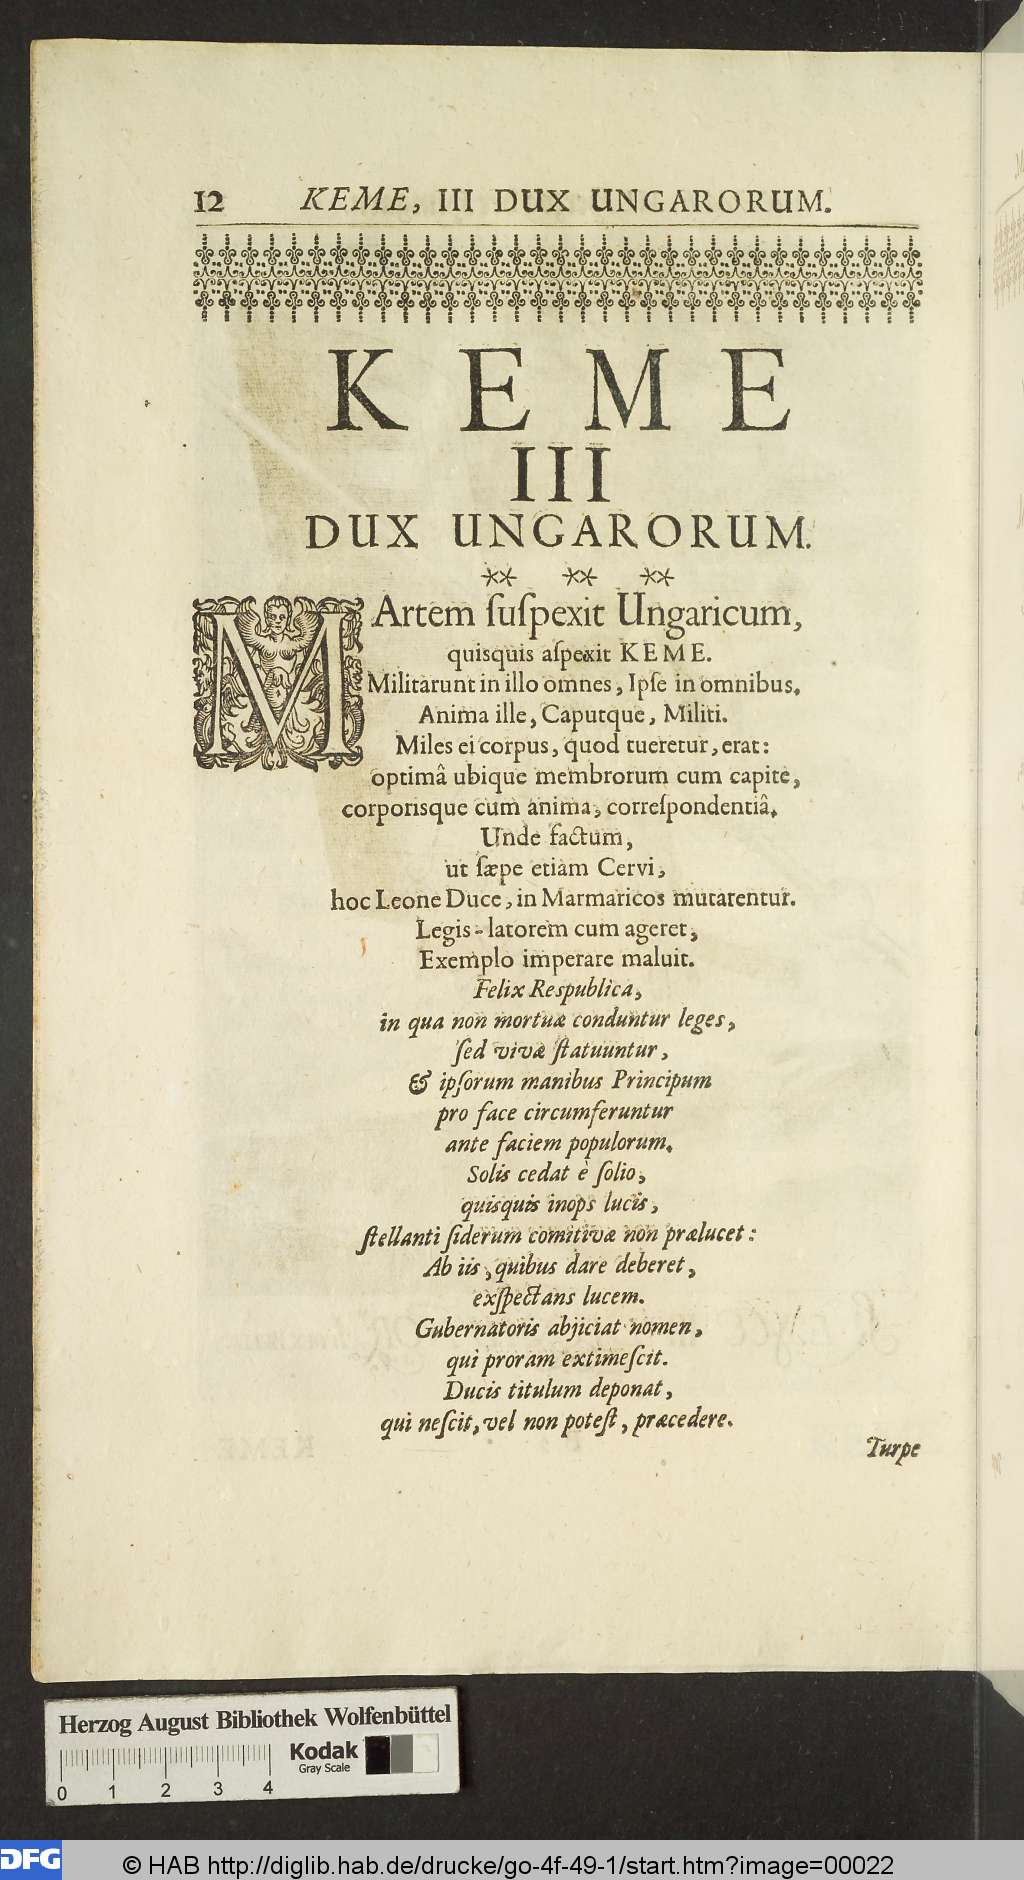 12 KEME, III DUX UNGARORUM.
KEME
III
DUX UNGARORUM.
** ** **
MArtem ſuſpexit Ungaricum,
quisquis aſpexit KEME.
Militarunt in illo omnes, Ipſe in omnibus.
Anima ille, Caputque, Militi.
Miles ei corpus, quod tueretur, erat:
optimâ ubique membrorum cum capite,
corporisque cum anima, correſpondentiâ.
Unde factum,
ut ſæpe etiam Cervi,
hoc Leone Duce, in Marmaricos mutarentur.
Legis-latorem cum ageret,
Exemplo imperare maluit.
Felix Respublica,
in qua non mortuæ conduntur leges,
ſed vivæ ſtatuuntur,
& ipſorum manibus Principum
pro face circumferuntur
ante faciem populorum.
Solis cedat è ſolio,
quisquis inops lucis,
ſtellanti ſiderum comitivæ non prælucet:
Ab iis, quibus dare deberet,
exſpectans lucem.
Gubernatoris abjiciat nomen,
qui proram extimeſcit.
Ducis titulum deponat,
qui neſcit, vel non poteſt, præcedere.
Turpe
Herzog August Bibliothek Wolfenbüttel
Kodak
Gray Scale
0 1 2 3 4
DFG
© HAB http://diglib.hab.de/drucke/go-4f-49-1/start.htm?image=00022